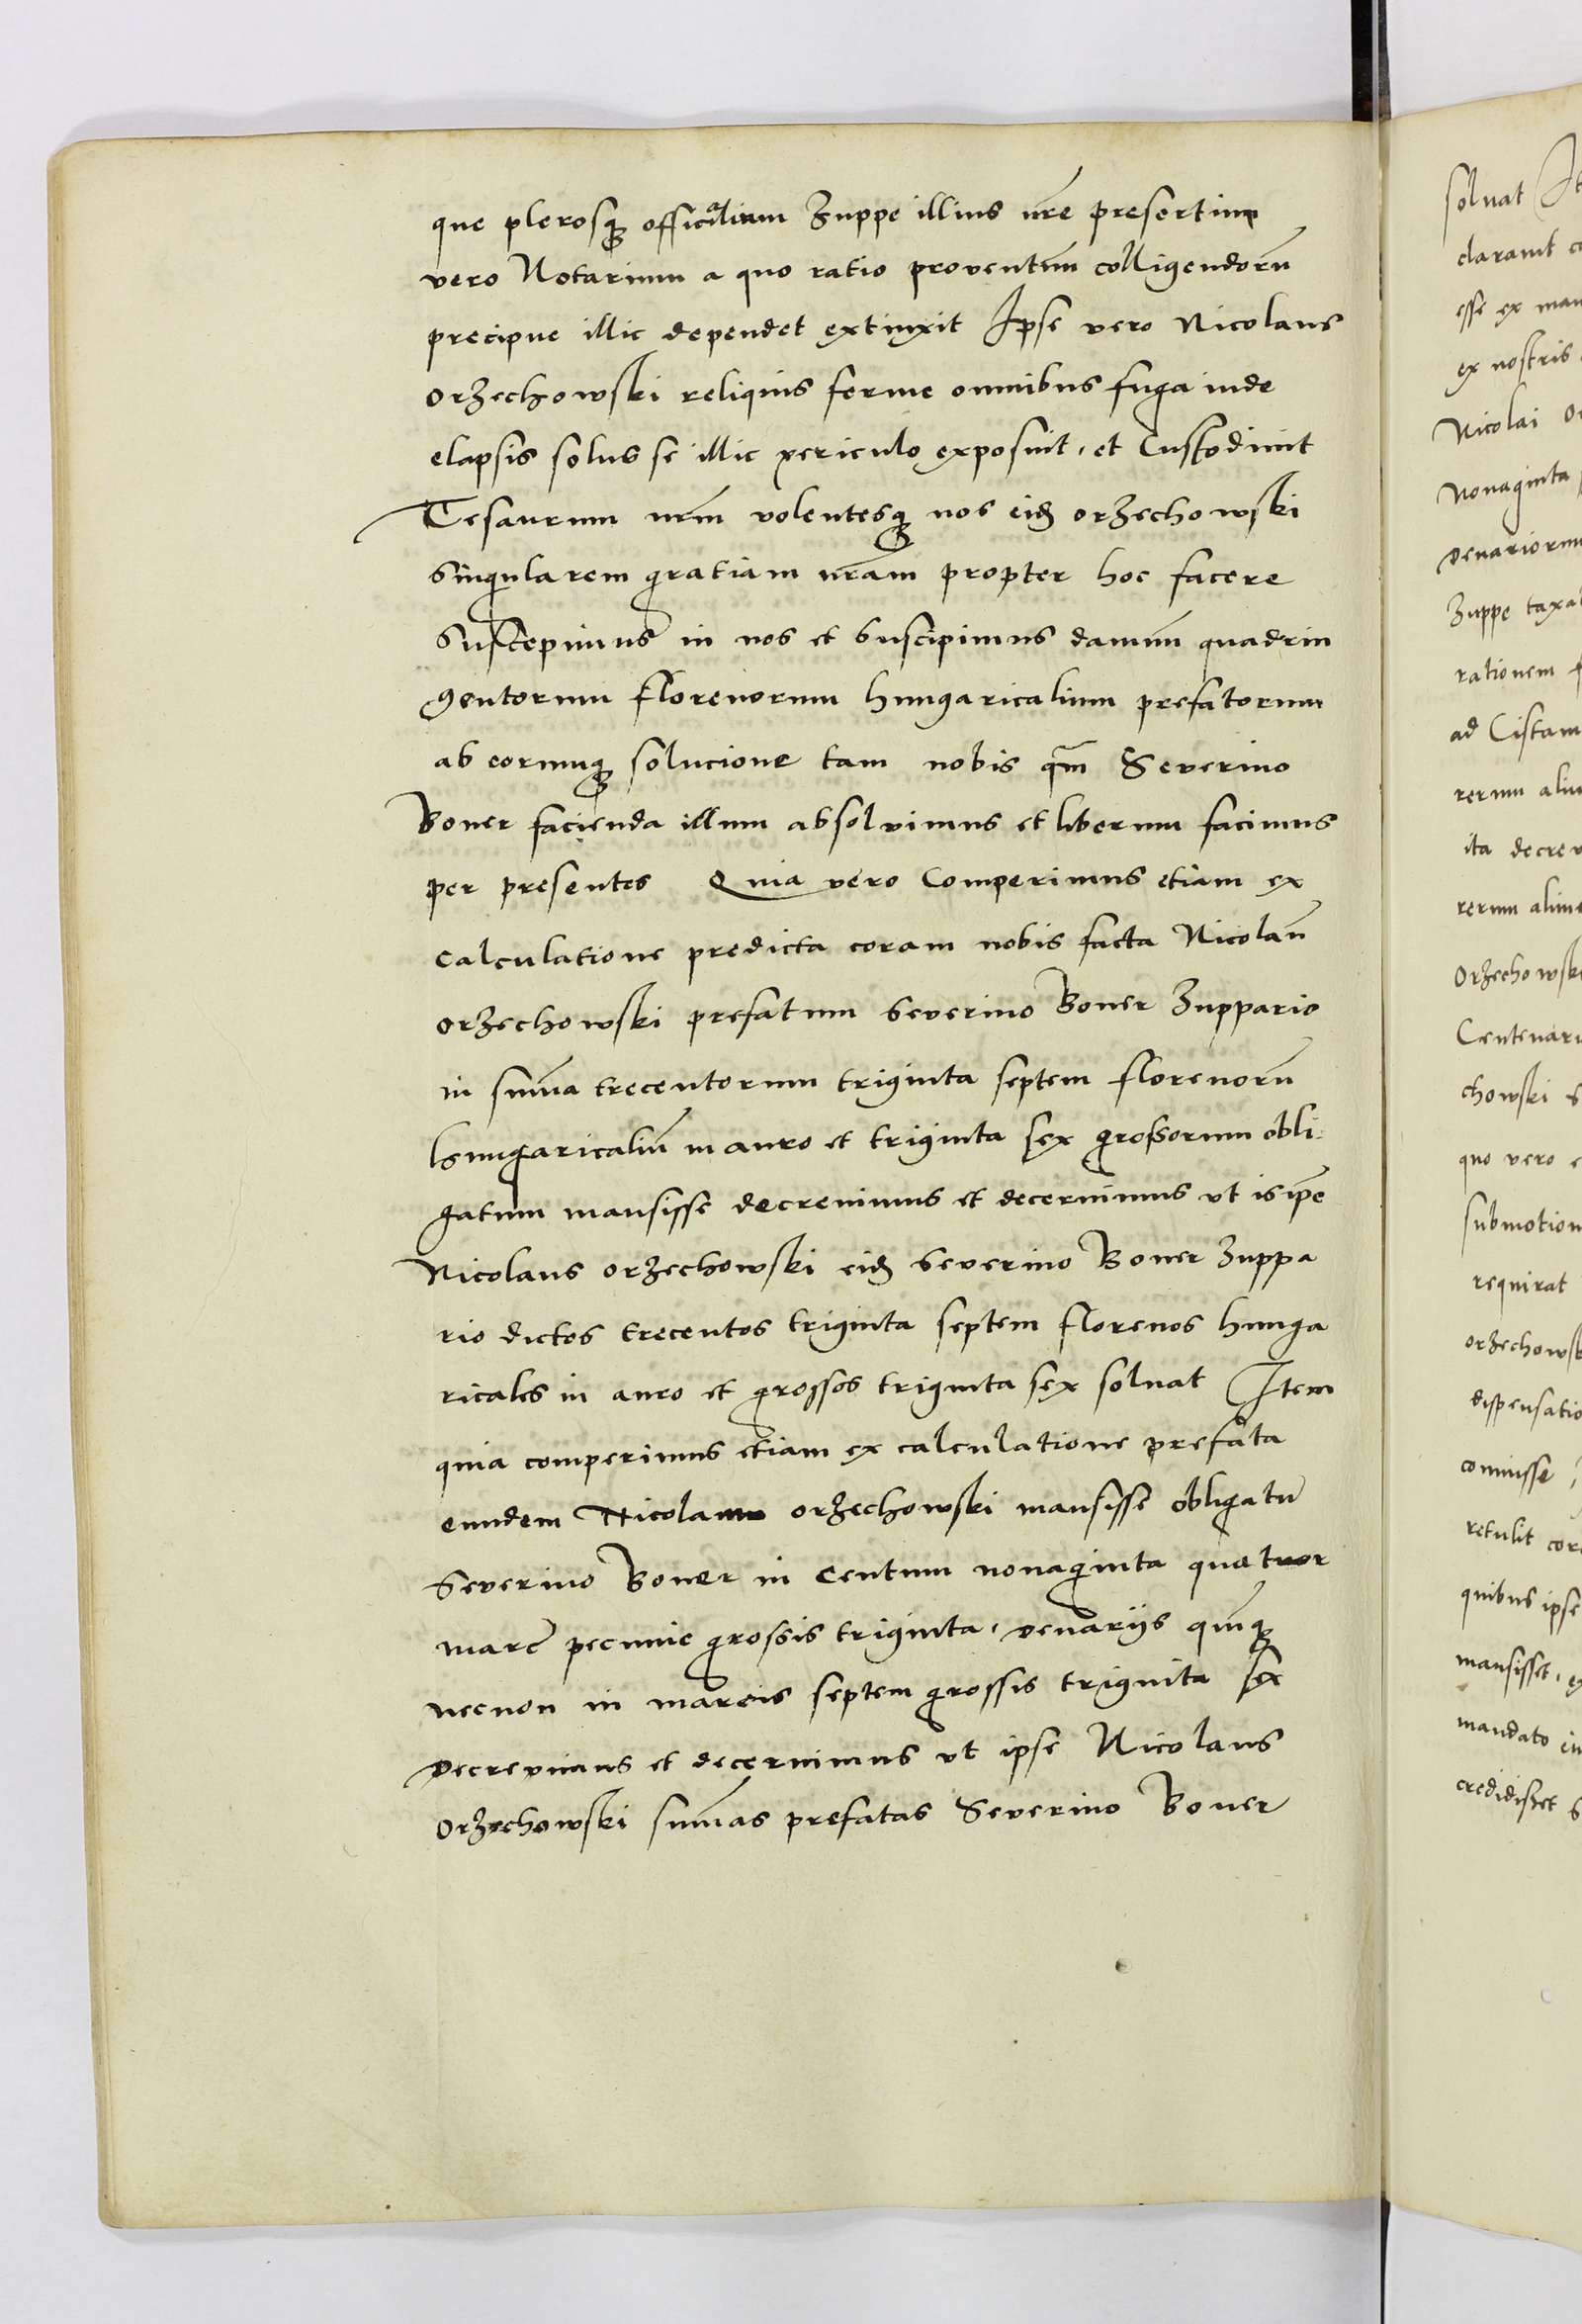 que plerosq₃ officialium Zuppe illius nr̃e presertim
vero Notarium a quo ratio proventuũ colligendorũ
precipue illic dependet extinxit Ipse vero Nicolaus
orzechowski reliquis ferme omnibus fuga inde
elapsis solus se illic periculo exposuit, et Custodiuit
Tesaurum nr̃m volentesq₃ nos eid₃ orzechowski
singularem gratiam nr̃am propter hoc facere
Suscepimus in nos et suscipimus damnũ quadrin
gentorum florenorum hungaricalium prefatorum
ab eorumq₃ solucione tam nobis q̃m Severino
Boner facienda illum absolvimus et liberum facimus
per presentes Quia vero Comperimus etiam ex
calculatione predicta coram nobis facta Nicolaũ
orzechowski prefatum Severino Boner Zuppario
in sum̃a trecentorum triginta septem florenorũ
hungaricaliũ in auro et triginta sex grossorum obli
gatum mansisse decrevimus et decernimus ut is ip̃e
Nicolaus orzechowski eid₃ Severino Boner Zuppa
rio dictos trecentos triginta septem florenos hunga
ricales in auro et grossos triginta sex solvat Item
quia comperimus etiam ex calculatione prefata
eundem Nicolaum orzechowski mansisse obligatũ
Severino Boner in Centum nonaginta quatuor
marc̃ pecunie grossis triginta, denarijs quinq₃
necnon in marcis septem grossis triginta sex
Decrevimus et decernimus ut ipse Nicolaus
Orzechowski sum̃as prefatas Severino Boner
solvat It
claravit
esse ex man
ex nostris
Nicolai or
Nonaginta
Denariorum
Zuppe taxat
rationem
ad Cistam
rerum alim
ita decrev
rerum alime
Orzechowski
Centenari
chowski s
quo vero e
submotion
requirat
orzechowsk
dispensatio
comisse
retulit cora
quibus ipse
mansisset, ex
mandato
credidisset s